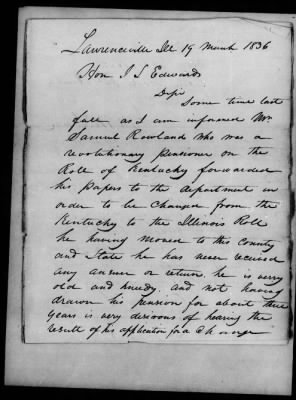 Lawrenceville Ill 19 March 1836
Hon J L Edwards
Some time last
fall as I am informed Mr.
Samuel Rowland who was a
revolutionary pensioner on the
Roll of Kentucky forwarded
his papers to the department in
order to be changed from the
Kentucky to the Illinois Roll
he having moved to this County
and State he has never received
any answer or return. he is verry
old and needy. and not having
drawn his pension for about three
years is very desirous of hearing the
result of his application for a change